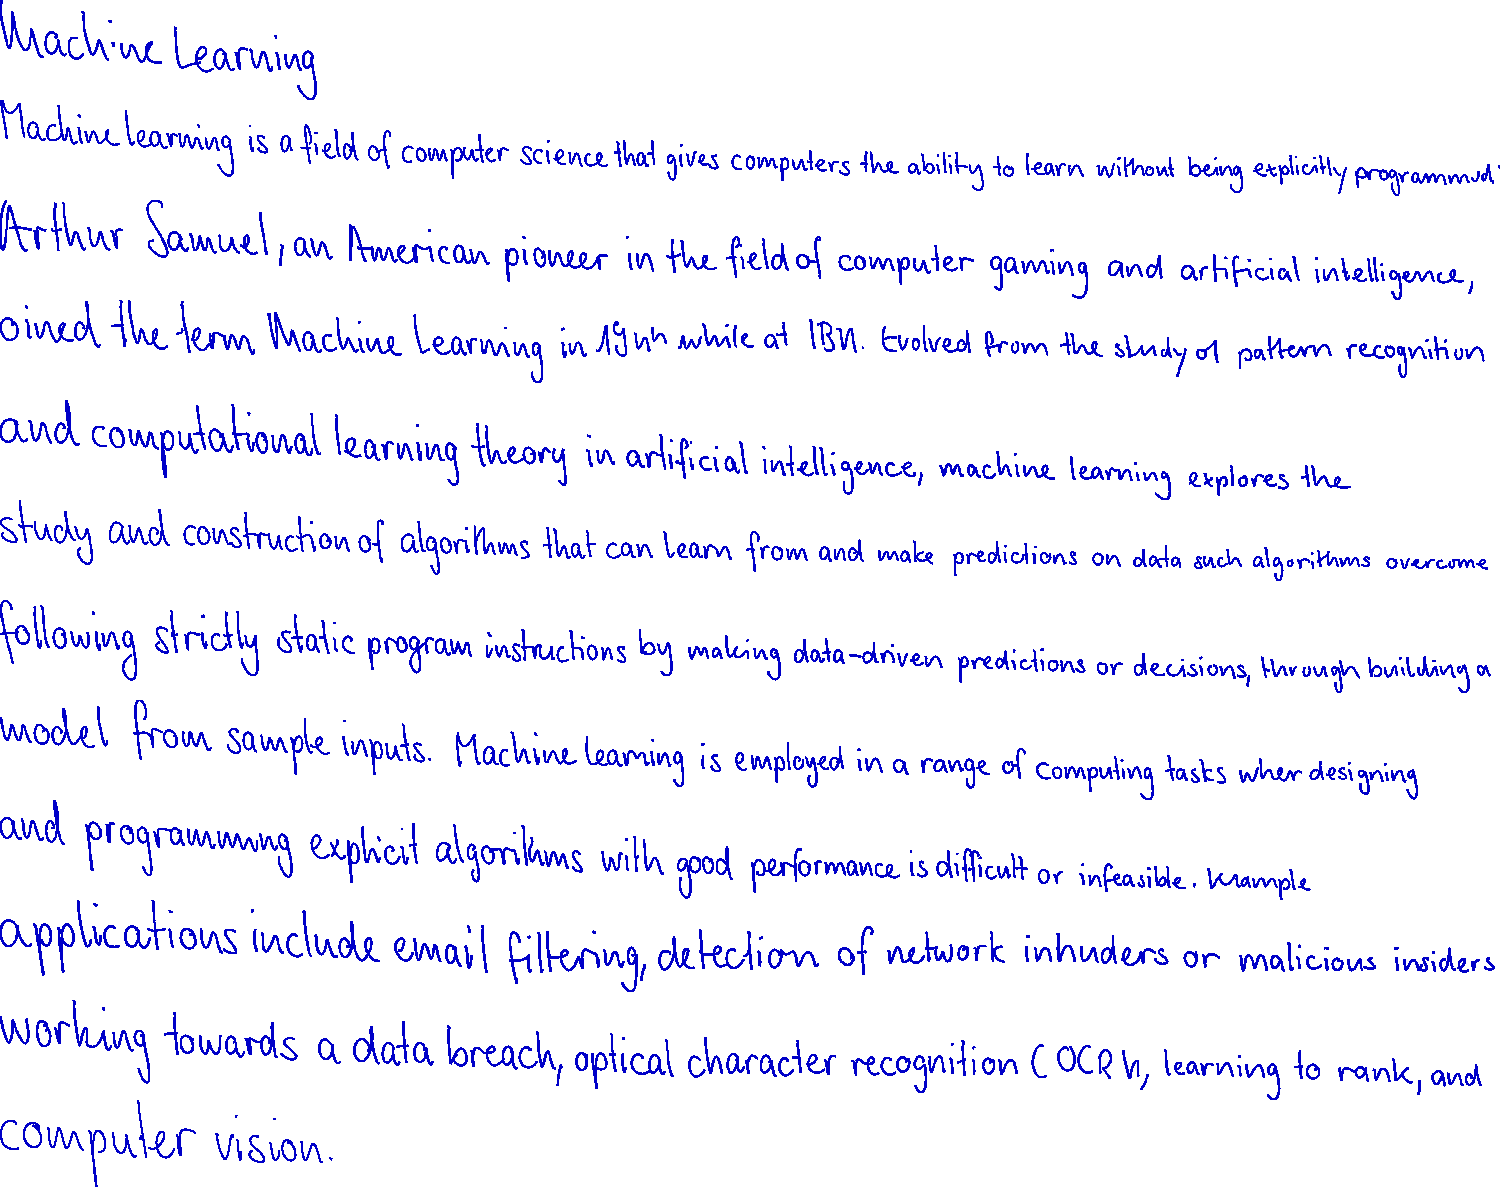 Machine Learning
Machine learning is a field of computer science that gives computers the ability to learn without being explicitly programmed.
Arthur Samuel, an American pioneer in the field of computer gaming and artificial intelligence,
oined the term Machine Learning in while at IBM. Evolved from the study of pattern recognition
and computational learning theory in artificial intelligence, machine learning explores the
study and construction of algorithms that can learn from and make predictions on data such algorithms overcome
following strictly static program instructions by making data-driven predictions or decisions, through building a
model from sample inputs. Machine learning is employed in a range of computing tasks wher designing
and programming explicit algorithms with good performance is difficult or infeasible.
applications include email filtering, detection of network inhuders or malicious insiders
working towards a data breach, optical character recognition (OCR), learning to rank, and
computer vision.